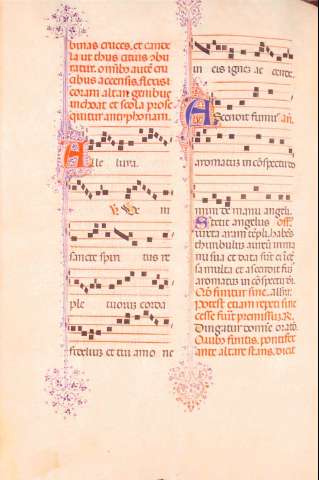 binas cruces, et cande
la ut thus citius abu
ratur. omnibus aute cru
cibus accensis, flexis
coram altari genibus
inchoat et scola prose
quitur antiphonam.
Alle luya.
Ve ni
sancte spiri tus re
ple tuorum corda
fidelium et tui amo ris
in eis ignem ac cende.
Ascendit fumus an.
aromatum in conspectu do
mini de manu angeli.
Stetit angelus off.
iuxta aram templi habens
thuribulum aureum in manu
sua et data sunt ei incen
sa multa et ascendit fum
aromatum in conspectu dei
potest etiam repeti sine
cesse fuerit premissum R.
Quibus finitis, pontifex
ante altare stans, dicit